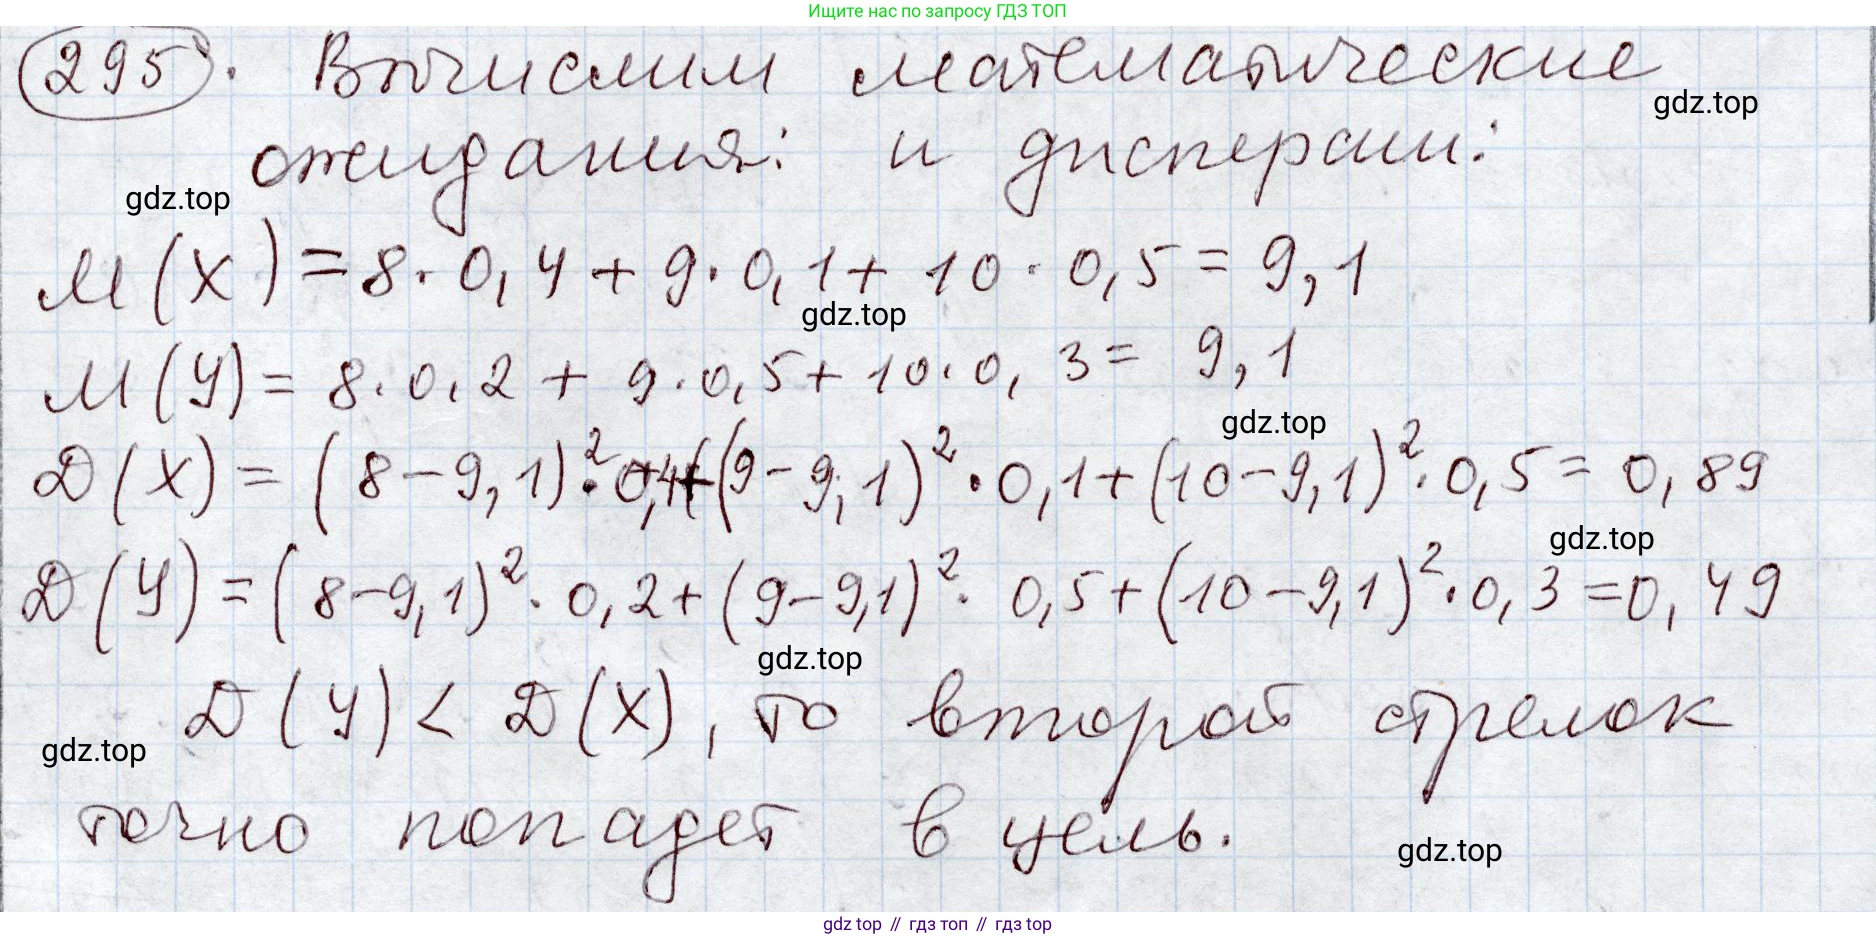 Ищите нас по запросу ГДЗ ТОП
295. Вычислим математические
gdz.top
ожидания: и дисперсии:
gdz.top
M(X) = 8·0,4 + 9·0,1 + 10·0,5 = 9,1
gdz.top
M(У) = 8·0,2 + 9·0,5 + 10·0,3 = 9,1
gdz.top
D(X) = (8-9,1)²·0,4+(9-9,1)²·0,1+(10-9,1)²·0,5 = 0,89
gdz.top
D(У) = (8-9,1)²·0,2+(9-9,1)²·0,5+(10-9,1)²·0,3 = 0,49
gdz.top
D(У) < D(X), то второй стрелок
gdz.top
точно попадет в цель.
gdz.top
gdz top // гдз топ // гдз top